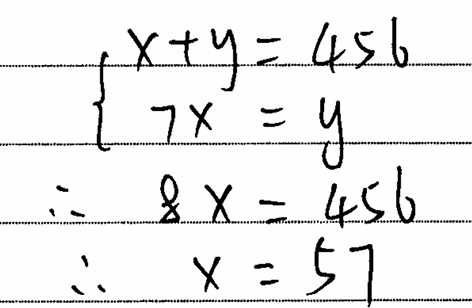 x+y=456
7x=y
∴ 8x=456
∴ x=57